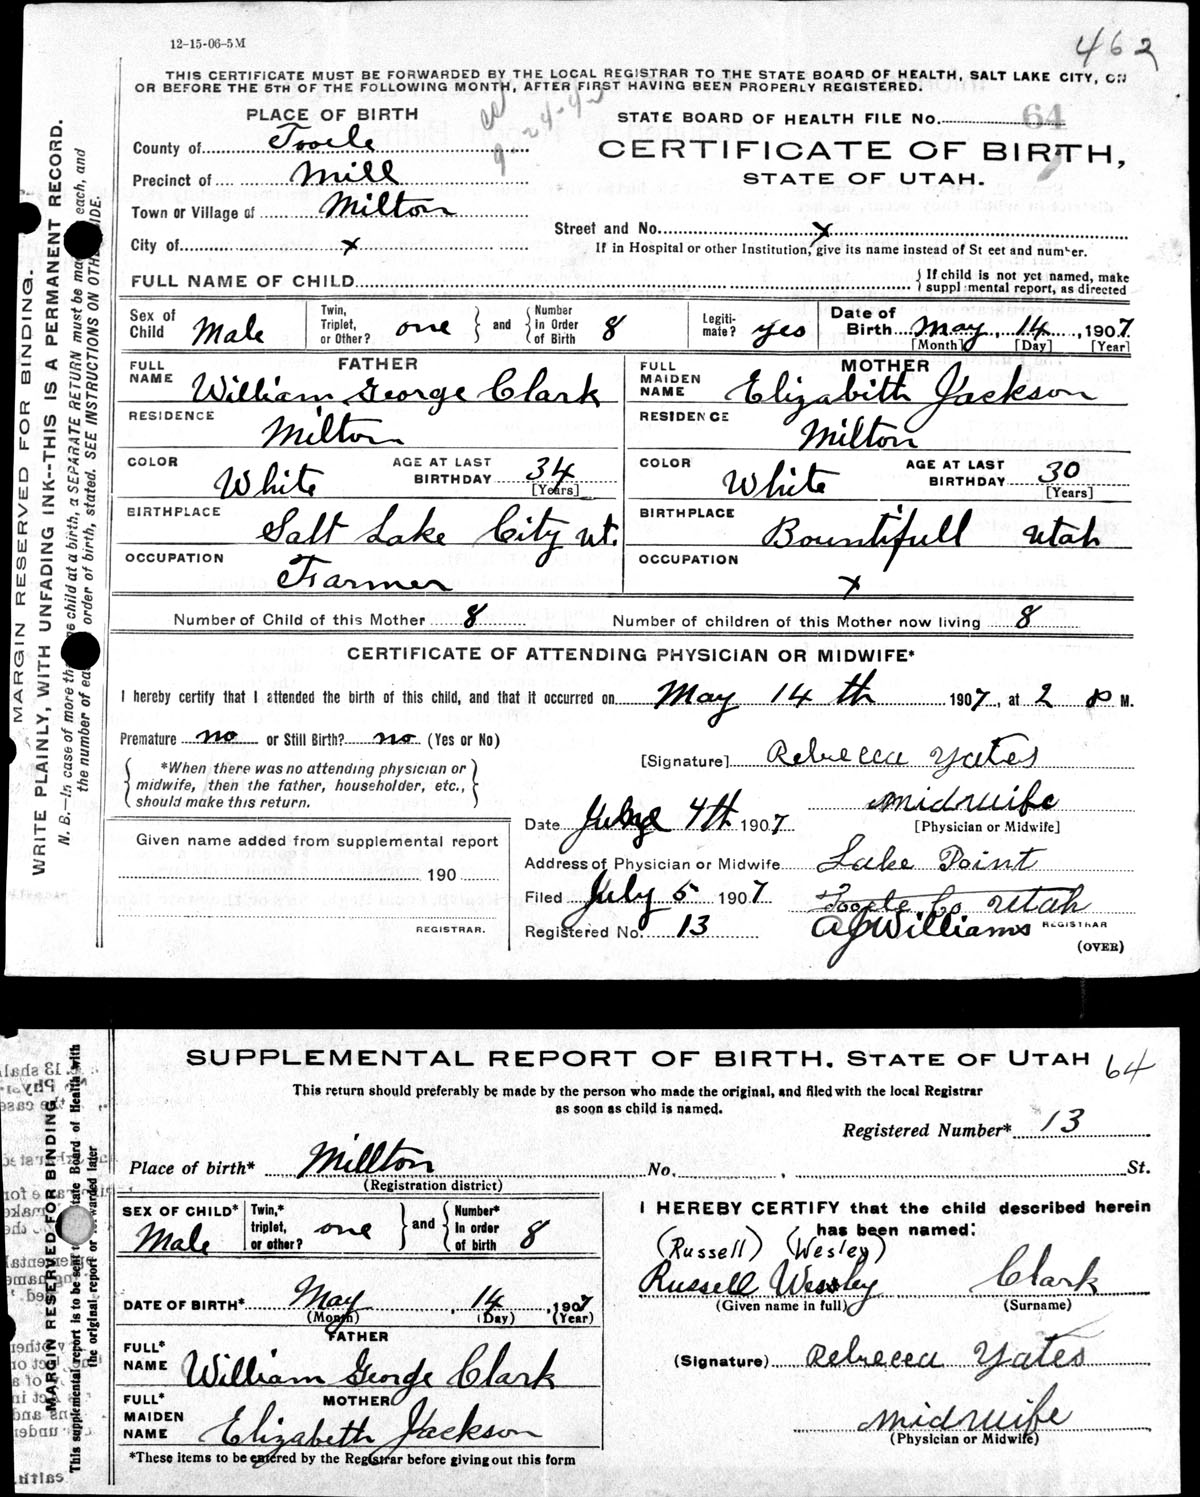 12-15-06-5M
462
THIS CERTIFICATE MUST BE FORWARDED BY THE LOCAL REGISTRAR TO THE STATE BOARD OF HEALTH, SALT LAKE CITY, ON
OR BEFORE THE 5TH OF THE FOLLOWING MONTH, AFTER FIRST HAVING BEEN PROPERLY REGISTERED.
PLACE OF BIRTH
STATE BOARD OF HEALTH FILE No. 64
County of Tooele
CERTIFICATE OF BIRTH,
STATE OF UTAH.
Precinct of Mill
Town or Village of Milton
Street and No. x
City of x
If in Hospital or other Institution, give its name instead of St eet and number.
FULL NAME OF CHILD
If child is not yet named, make
suppl mental report, as directed
Sex of Child Male
Twin, Triplet, or Other? one and Number in Order of Birth 8
Legiti-mate? yes
Date of Birth May 14, 1907
[Month] [Day] [Year]
FATHER
FULL NAME William George Clark
MOTHER
FULL MAIDEN NAME Elizabith Jackson
RESIDENCE Milton
RESIDENCE Milton
COLOR White AGE AT LAST BIRTHDAY 34 [Years]
COLOR White AGE AT LAST BIRTHDAY 30 [Years]
BIRTHPLACE Salt Lake City ut.
BIRTHPLACE Bountifull Utah
OCCUPATION Farmer
OCCUPATION x
Number of Child of this Mother 8
Number of children of this Mother now living 8
CERTIFICATE OF ATTENDING PHYSICIAN OR MIDWIFE*
I hereby certify that I attended the birth of this child, and that it occurred on May 14 th 1907, at 2 P M.
Premature no or Still Birth? no (Yes or No)
[Signature] Rebrecca Yates
*When there was no attending physician or
midwife, then the father, householder, etc.,
should make this return.
midwife
[Physician or Midwife]
Date 4th 1907
Given name added from supplemental report
190
REGISTRAR.
Address of Physician or Midwife Lake Point
Tooele Co Utah
Filed July 5 1907
Registered No. 13
A J Williams REGISTRAR
(OVER)
MARGIN RESERVED FOR BINDING.
WRITE PLAINLY, WITH UNFADING INK--THIS IS A PERMANENT RECORD.
N. B.—In case of more tha ne child at a birth, a SEPARATE RETURN must be ma each, and
the number of ea order of birth, stated. SEE INSTRUCTIONS ON OTH IDE.
SUPPLEMENTAL REPORT OF BIRTH. STATE OF UTAH 64
This return should preferably be made by the person who made the original, and filed with the local Registrar
as soon as child is named.
Registered Number* 13
Place of birth* Millton No. , St.
(Registration district)
SEX OF CHILD* Male
Twin,* triplet, or other? one and Number* In order of birth 8
I HEREBY CERTIFY that the child described herein
has been named:
(Russell) (Wesley)
Russell Wessley Clark
(Given name in full) (Surname)
DATE OF BIRTH* May, 14, 1907
(Month) (Day) (Year)
FATHER
FULL* NAME William George Clark
(Signature) Rebrecca Yates
MOTHER
FULL* MAIDEN NAME Elizabeth Jackson
midwife
(Physician or Midwife)
*These items to be entered by the Registrar before giving out this form
MARGIN RESERVED FOR BINDING.
This supplemental report is to be sent to tate Board of Health with
the original report or forwarded later